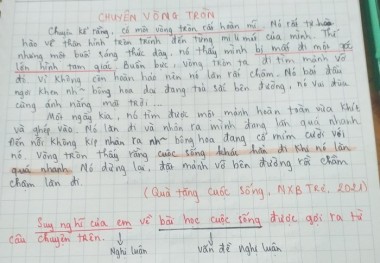 CHUYỆN VÒNG TRÒN
Chuyện kể rằng, có một vòng tròn rất hoàn mĩ. Nó rất tự
hào về thân hình tròn trĩnh đến từng milimét của mình. Thế
nhưng một buổi sáng thức dậy, nó thấy mình bị mất đi một góc
lớn hình tam giác. Buồn bực, vòng tròn ta đi tìm mảnh vỡ
đó. Vì không còn hoàn hảo nên nó lăn rất chậm. Nó bắt đầu
ngợi khen nh~ bông hoa dại đang toả sắc bên đường, nó vui đùa
cùng ánh nắng mặt trời...
Một ngày kia, nó tìm được một mảnh hoàn toàn vừa khít
và ghép vào. Nó lăn đi và nhận ra mình đang lăn quá nhanh.
Đến nỗi không kịp nhận ra nh~ bông hoa đang cố mỉm cười với
nó. Vòng tròn thấy rằng cuộc sống khác hẳn đi khi nó lăn
quá nhanh. Nó dừng lại, đặt mảnh vỡ bên đường rồi chầm
chậm lăn đi.
(Quà tặng cuộc sống, NXB Trẻ, 2021)
Suy nghĩ của em về bài học cuộc sống được gợi ra từ
câu chuyện trên.
Nghị luận
vấn đề nghị luận